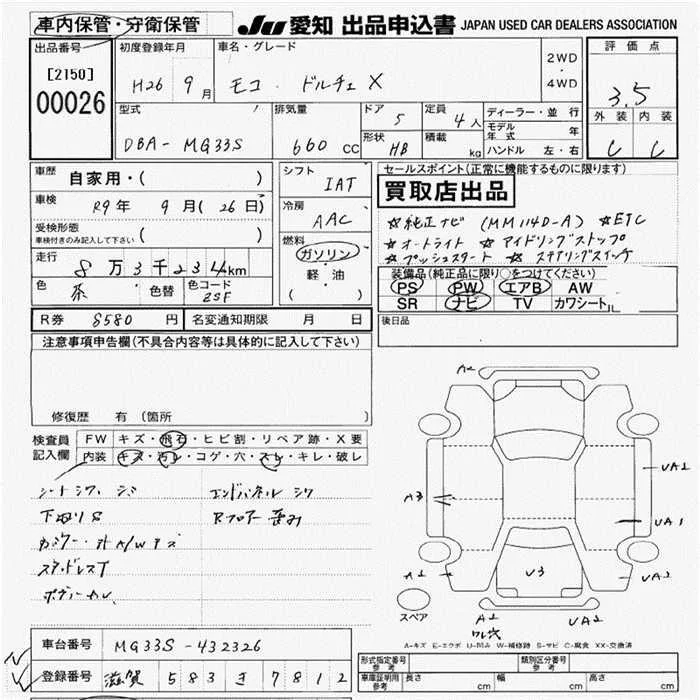 車内保管・守衛保管
JU 愛知 出品申込書 JAPAN USED CAR DEALERS ASSOCIATION
出品番号
[2150]
00026
初度登録年月
H26 9月
車名・グレード
モコ ドルチェ X
2WD
・
4WD
評価点
3.5
外装 内装
C C
型式
DBA-MG33S
排気量
660 CC
ドア
5
定員
4人
形状
HB
積載
kg
ディーラー・並行
モデル年式 年
ハンドル 左・右
車歴
自家用・( )
車検
R9年 9月(26日)
受検形態
車検付きのみ記入して下さい ( )
走行
8万3千234km
色
茶
色替
色コード
ZSF
シフト
IAT
冷房
AAC
燃料
ガソリン
軽・油
( )
セールスポイント(正常に機能するものに限ります)
買取店出品
☆純正ナビ (MM114D-A) ☆ETC
☆オートライト ☆アイドリングストップ
☆プッシュスタート ☆ステアリングスイッチ
装備品(純正品に限り○をつけてください)
PS PW エアB AW
SR ナビ TV カワシート
R券 8580円 名変通知期限 月 日
後日品
注意事項申告欄(不具合内容等は具体的に記入して下さい)
修復歴 有(箇所
検査員記入欄
FW キズ・飛石・ヒビ割・リペア跡・X要
内装 キズ・汚レ・コゲ・穴・スレ・キレ・破レ
シートシワ、シミ
エンドパネル シワ
下廻りS
Rフロアー 歪み
スタッドレスT
A2
A3
UA2
UA1
A2
V3
UA2
A2
ワレ穴
UA2
スペア
A-キズ E-エクボ U-凹み W-補修跡 S-サビ C-腐食 XX-交換済
車台番号 MG33S-432326
登録番号 滋賀 583 き 7812
形式指定番号 参考
類別区分番号 参考
車庫証明用 参考 長さ cm 幅 cm 高さ cm